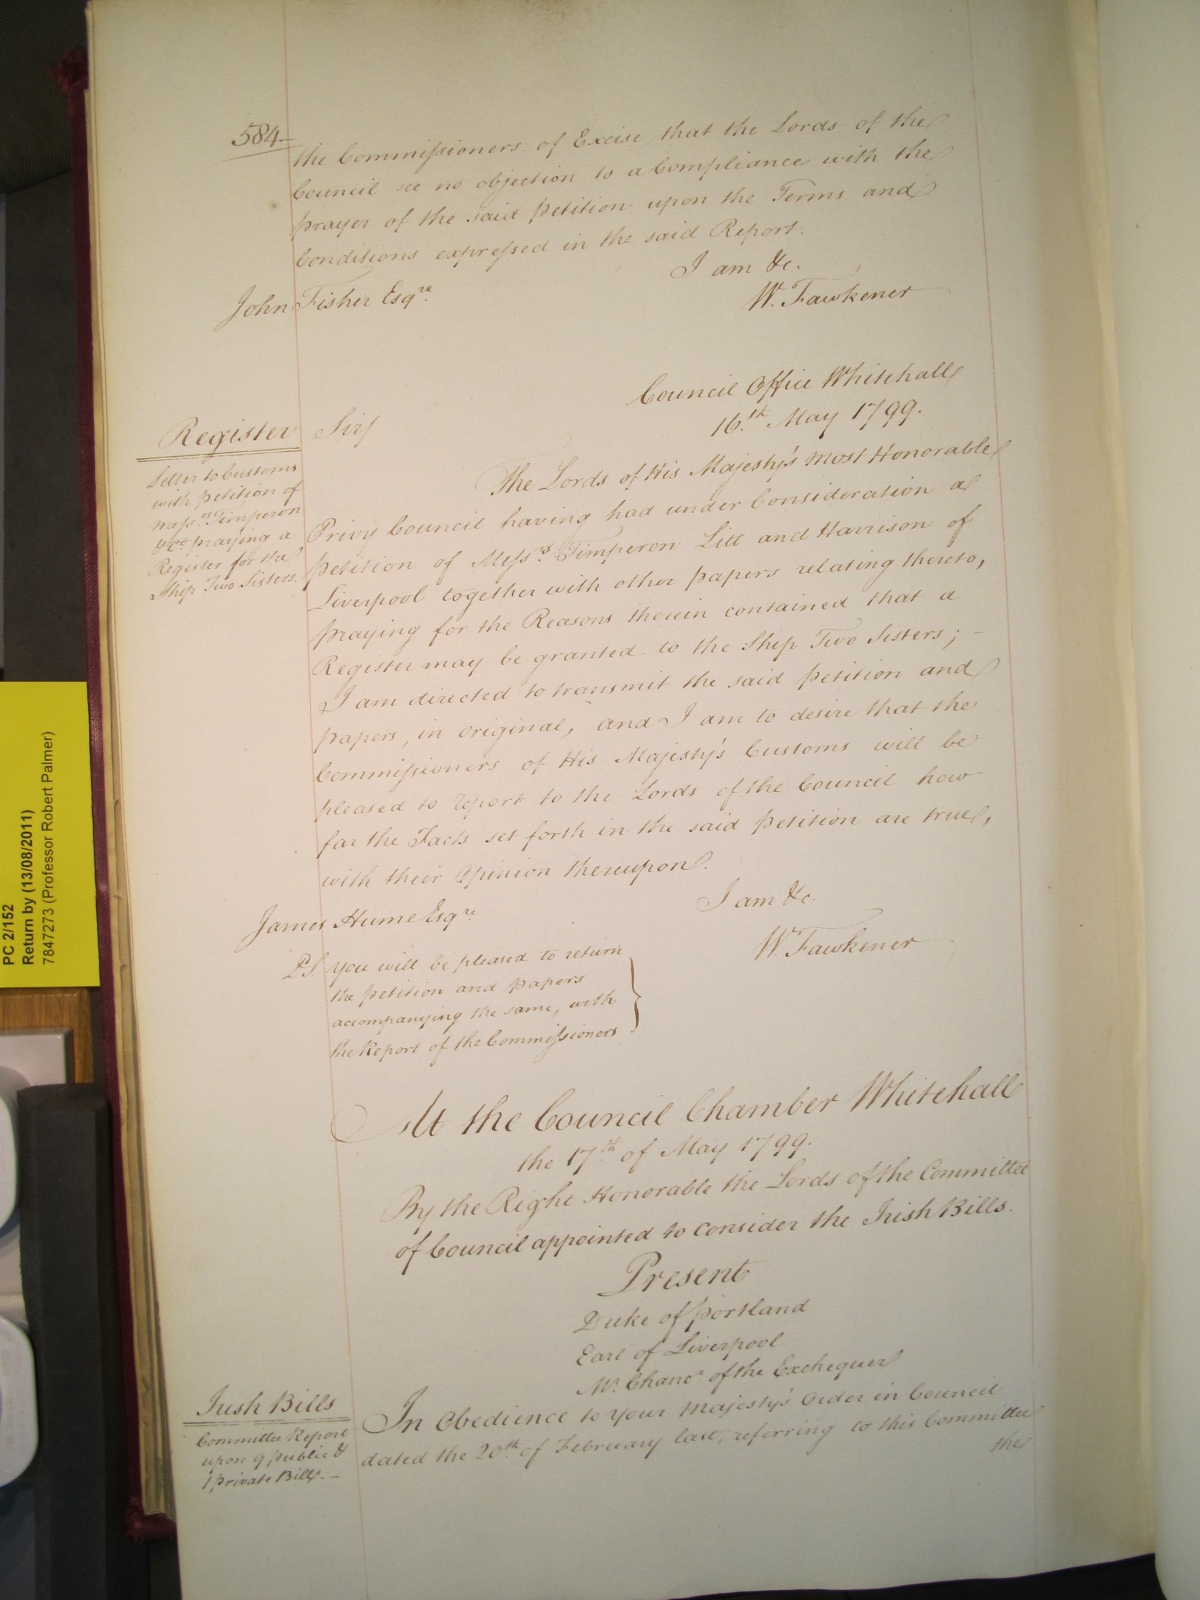 584
the Commissioners of Excise, that the Lords of the
Council see no objection to a Compliance with the
prayer of the said Petition upon the Terms and
Conditions expressed in the said Report.
I am &c.
W. Fawkener
John Fisher Esqre.
Council Office Whitehall
16.th May 1799.
Register
Letter to Customs
with petition of
Messrs. Timperon
& Co. praying a
Register for the
Ship Two Sisters.
Sir,
The Lords of His Majesty's most Honorable
Privy Council having had under Consideration a
petition of Messrs. Timperon Litt and Harrison of
Liverpool together with other papers relating thereto,
praying for the Reasons therein contained that a
Register may be granted to the Ship Two Sisters; -
I am directed to transmit the said petition and
papers, in original, and I am to desire that the
Commissioners of His Majesty's Customs will be
pleased to report to the Lords of the Council how
far the Facts set forth in the said petition are true,
with their Opinion thereupon.
I am &c.
W. Fawkener
James Hume Esqre
P.S. You will be pleased to return
the petition and papers
accompanying the same, with
the Report of the Commissioners
At the Council Chamber Whitehall
the 17th of May 1799.
By the Right Honorable the Lords of the Committee
of Council appointed to consider the Irish Bills.
Present
Duke of Portland
Earl of Liverpool
Mr. Chancr. of the Exchequer
Irish Bills
Committee Report
upon 9 public &
1 private Bills. -
In Obedience to Your Majesty's Order in Council
dated the 20th of February last, referring to this Committee
the
PC 2/152
Return by (13/08/2011)
7847273 (Professor Robert Palmer)